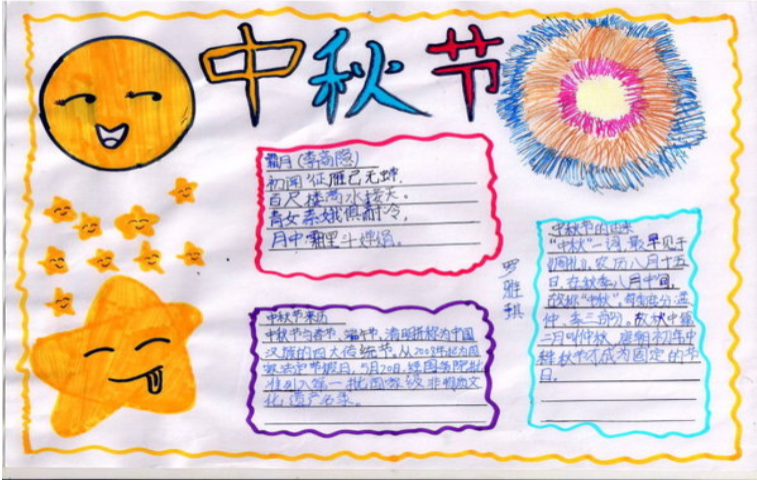 中秋节
霜月(李商隐)
初闻征雁已无蝉,
百尺楼高水接天。
青女素娥俱耐冷,
月中霜里斗婵娟。
罗雅琪
中秋节来历
中秋节与春节、端午节、清明节称为中国
汉族的四大传统节,从2008年起为国
家法定节假日。5月20日,经国务院批
准列入第一批国家级非物质文
化遗产名录。
中秋节的由来
"中秋"一词,最早见于
《周礼》,农历八月十五
日,在秋季八月中间,
故称"中秋"。
仲、季三部分,故秋中第
二月叫仲秋,唐朝初年中
秋节才成为固定的节
日。